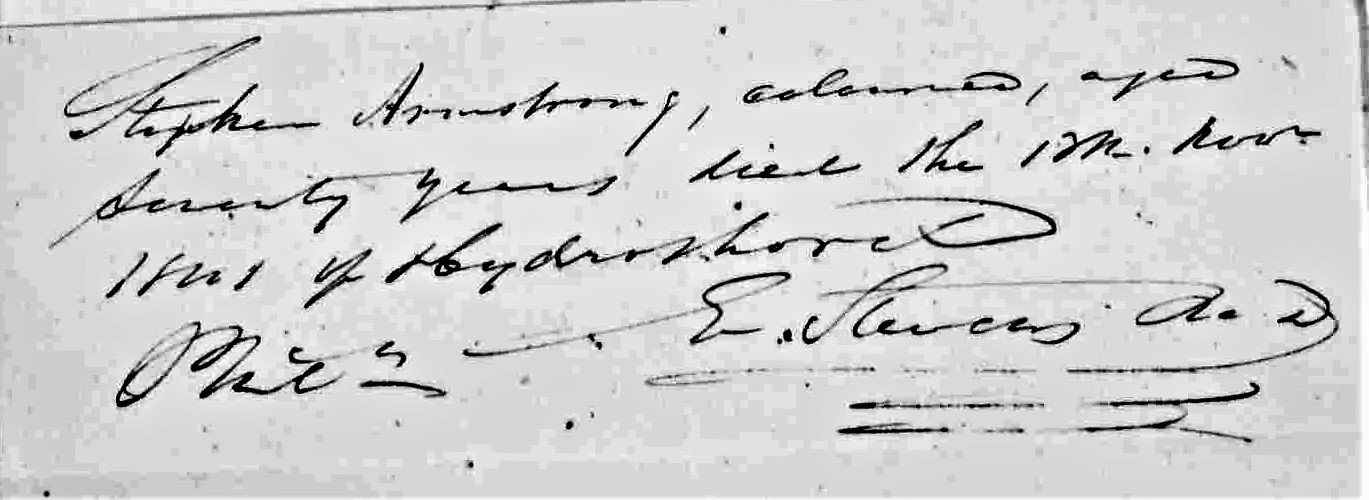 Stephen Armstrong, coloured, aged
Seventy years died the 12th. Novr
1841 of Hydrothorax
Phila E. Stevens M.D